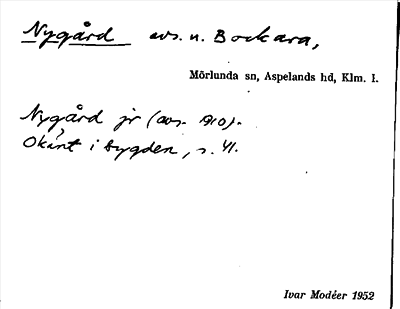 Nygård avs. u. Bockara,
Mörlunda sn, Aspelands hd, Klm. l.
Nygård jr (avs. 1910).
Okänt i bygden, s. 41.
Ivar Modéer 1952